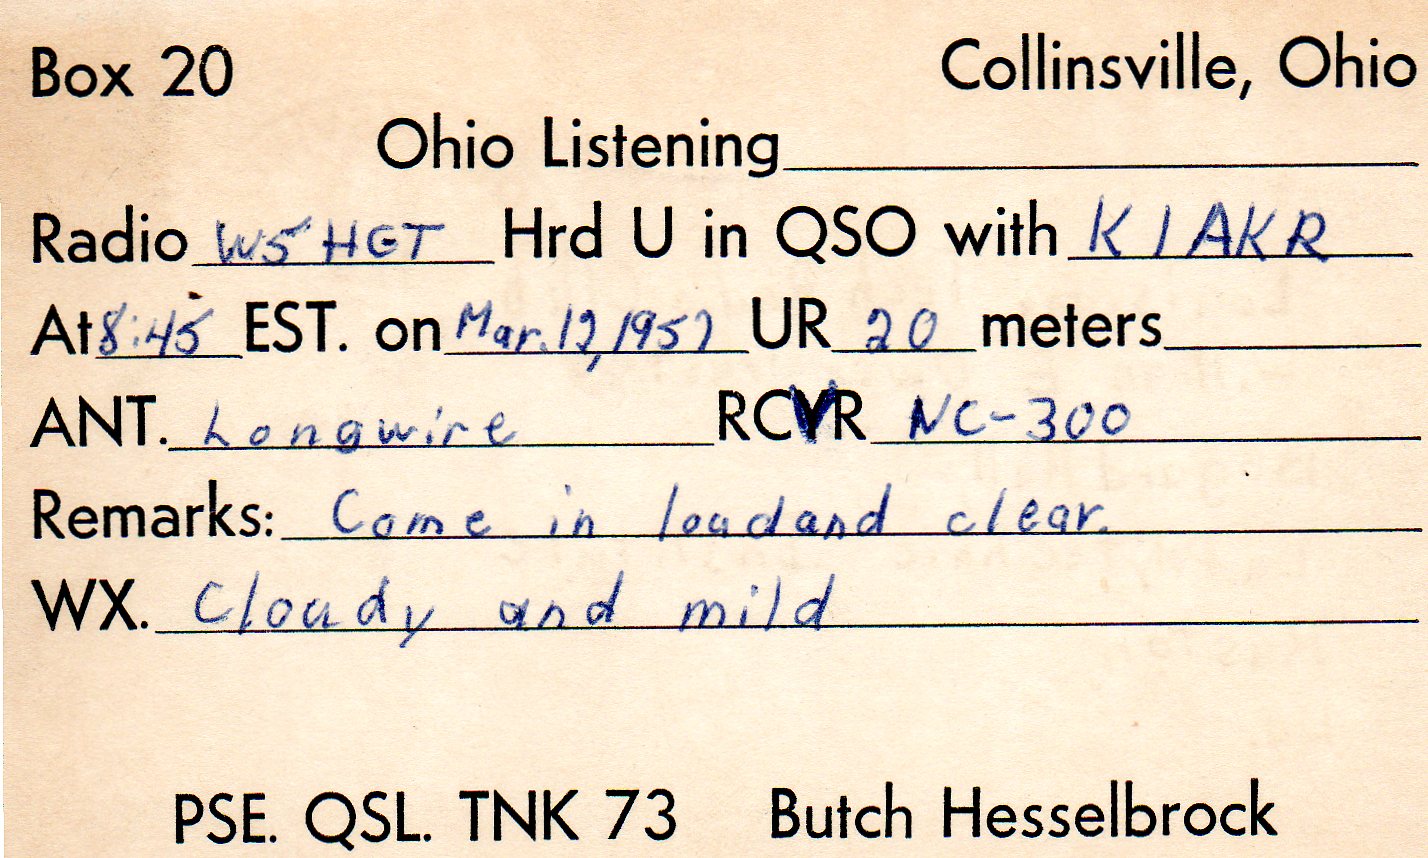 Box 20 Collinsville, Ohio
Ohio Listening
Radio W5HGT Hrd U in QSO with K1AKR
At 8:45 EST. on Mar. 17, 1957 UR 20 meters
ANT. Longwire RCVR NC-300
Remarks: Come in loud and clear.
WX. Cloudy and mild
PSE. QSL. TNK 73 Butch Hesselbrock